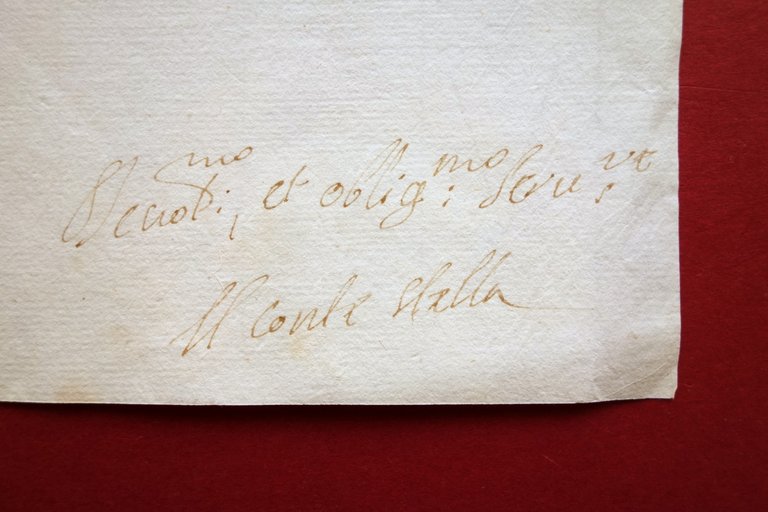 Deuot:mo, et obblig:mo Seru:re
Il Conte Stella